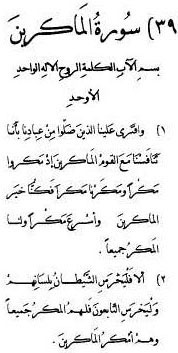 ٣٩) سورة الماكرين
بسم الآب الكلمة الروح الاله الواحد
الأوحد
١) وافترى علينا الذين ضلوا من عبادنا بأننا
تنافسنا مع القوم الماكرين إذ مكروا
مكراً ومكرنا مكراً فكنا خير
الماكرين وأسرع مكراً ولنا
المكر جميعاً.
٢) ألا فليخرس الشيطان بلسانهم
وليخرس التابعون فلهم المكر جميعاً
وهم أمكر الماكرين.